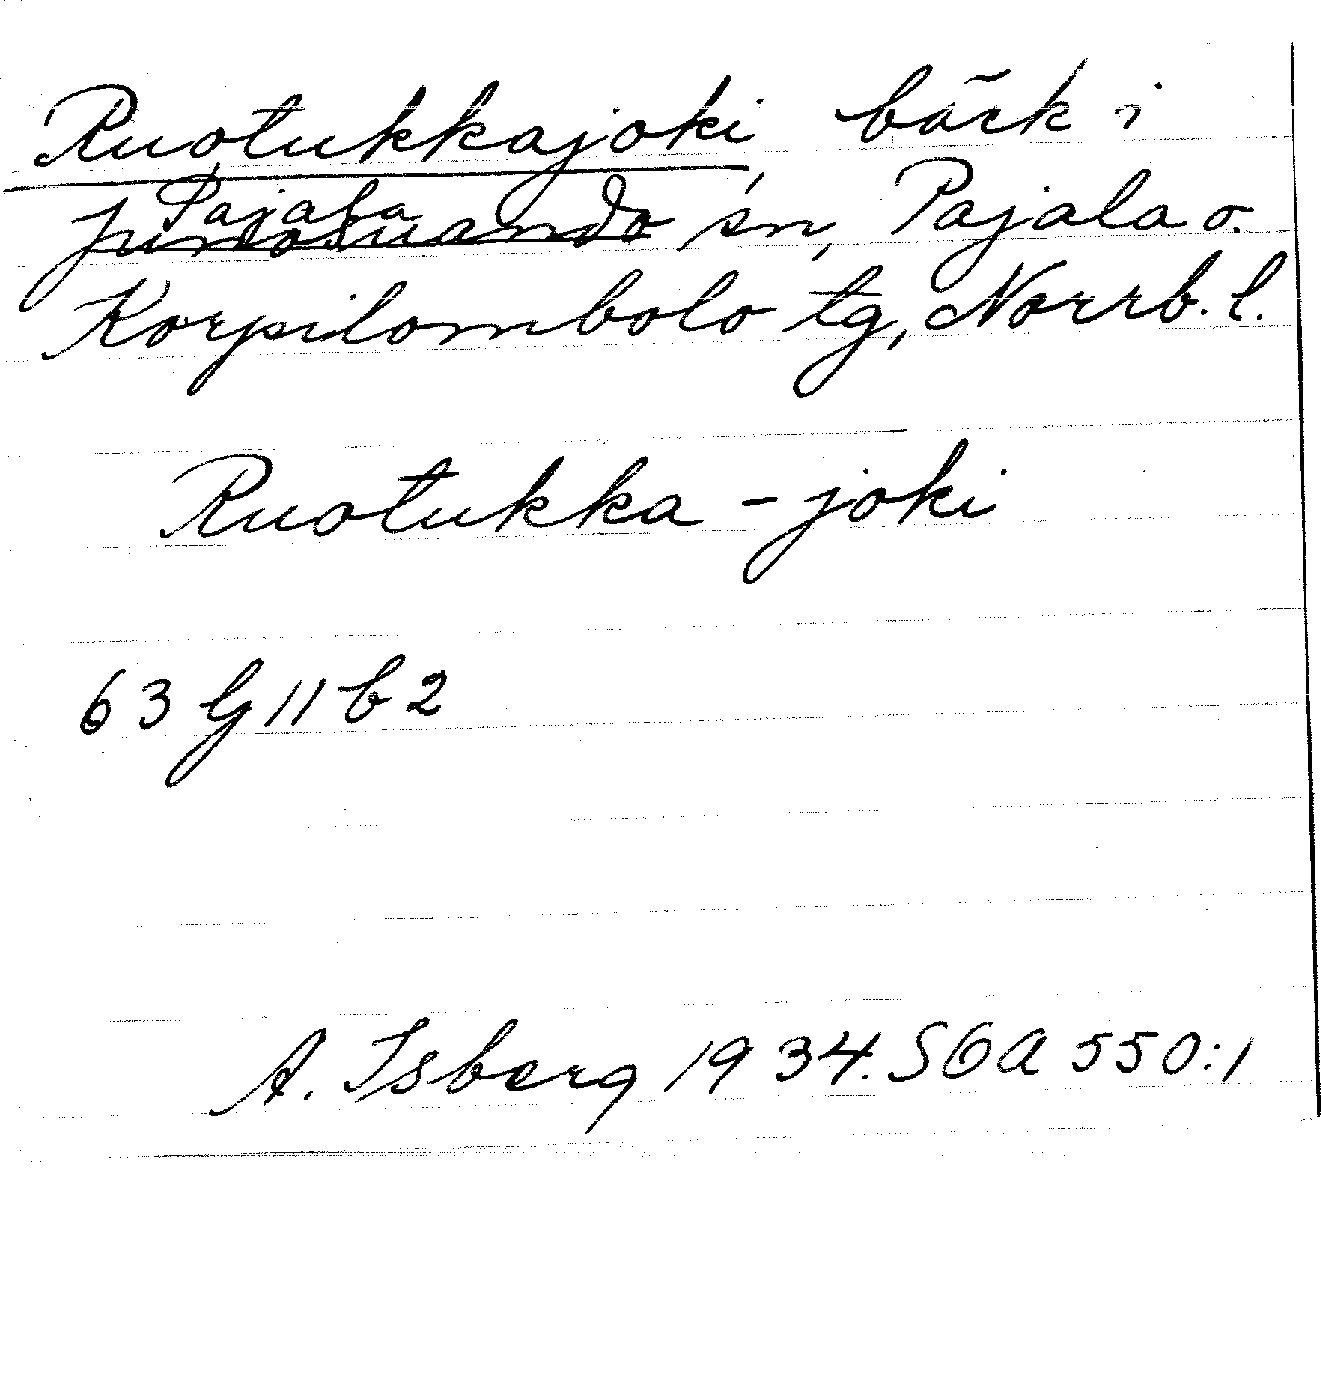 Ruotukkajoki, bäck i
Pajala
Junosuando sn, Pajala o.
Korpilombolo tg, Norrb. l.
Ruotukka - joki
63 G 11 b 2
A. Isberg 1934. SOA 550:1